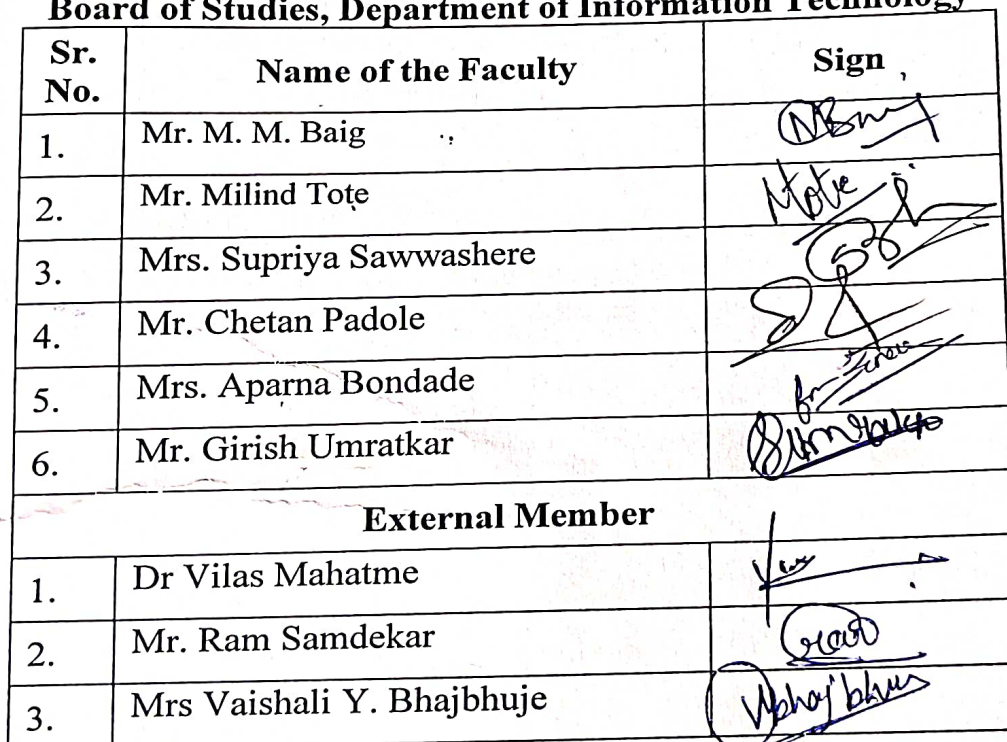 Board of Studies, Department of Information Technology
Sr. No. Name of the Faculty Sign
1. Mr. M. M. Baig
2. Mr. Milind Tote Mtote
3. Mrs. Supriya Sawwashere
4. Mr. Chetan Padole
5. Mrs. Aparna Bondade
6. Mr. Girish Umratkar
External Member
1. Dr Vilas Mahatme
2. Mr. Ram Samdekar
3. Mrs Vaishali Y. Bhajbhuje